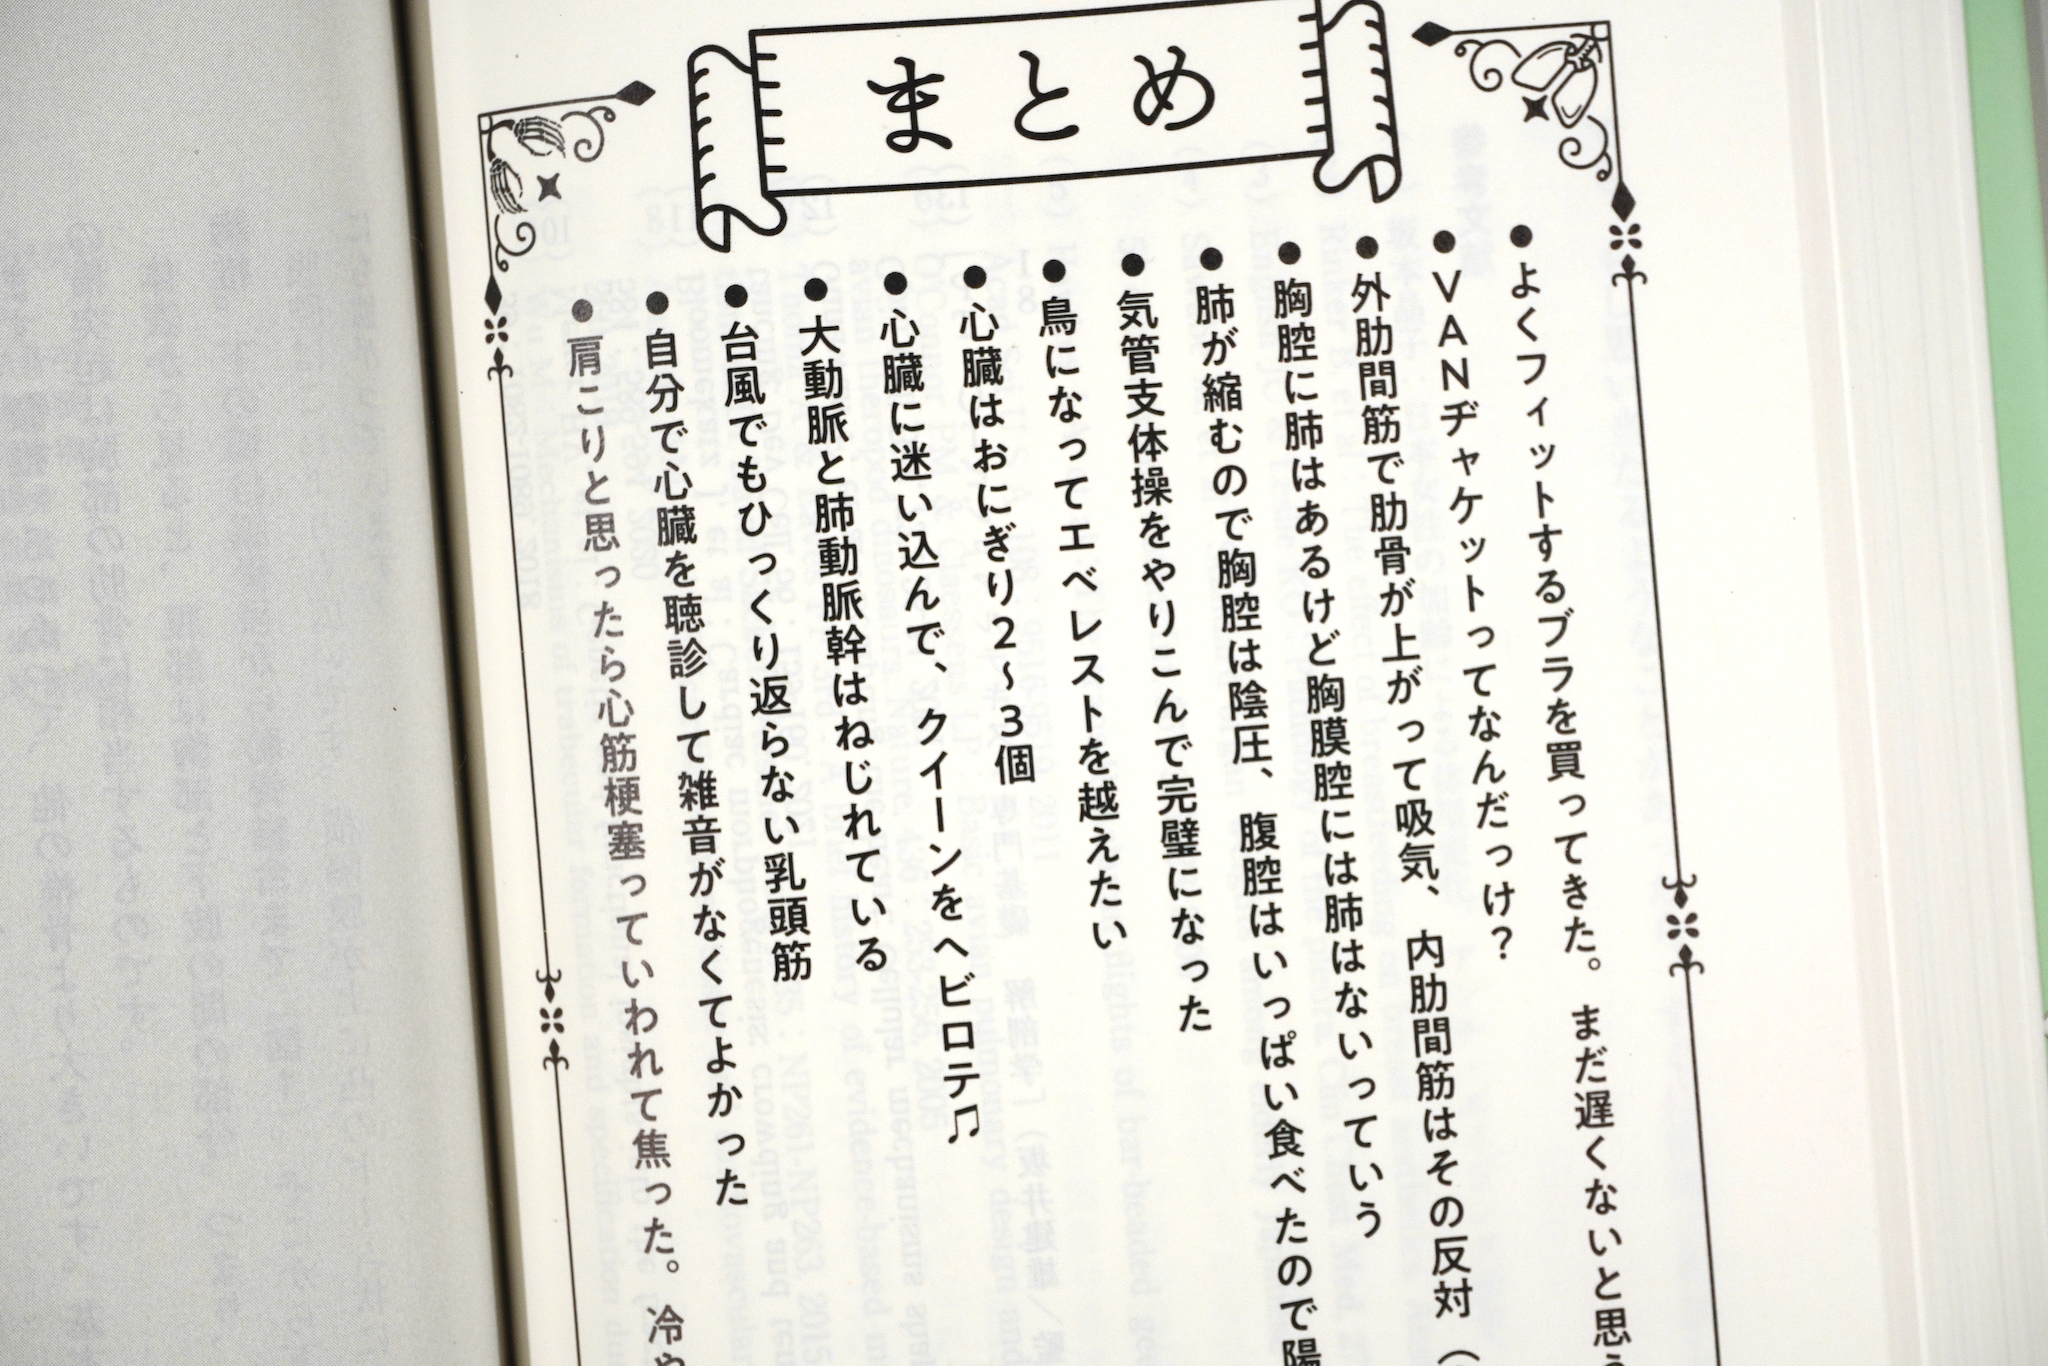 まとめ
●よくフィットするブラを買ってきた。まだ遅くないと思う
●VANヂャケットってなんだっけ？
●外肋間筋で肋骨が上がって吸気、内肋間筋はその反対（
●胸腔に肺はあるけど胸膜腔には肺はないっていう
●肺が縮むので胸腔は陰圧、腹腔はいっぱい食べたので陽
●気管支体操をやりこんで完璧になった
●鳥になってエベレストを越えたい
●心臓はおにぎり2〜3個
●心臓に迷い込んで、クイーンをヘビロテ♫
●大動脈と肺動脈幹はねじれている
●台風でもひっくり返らない乳頭筋
●自分で心臓を聴診して雑音がなくてよかった
●肩こりと思ったら心筋梗塞っていわれて焦った。冷や